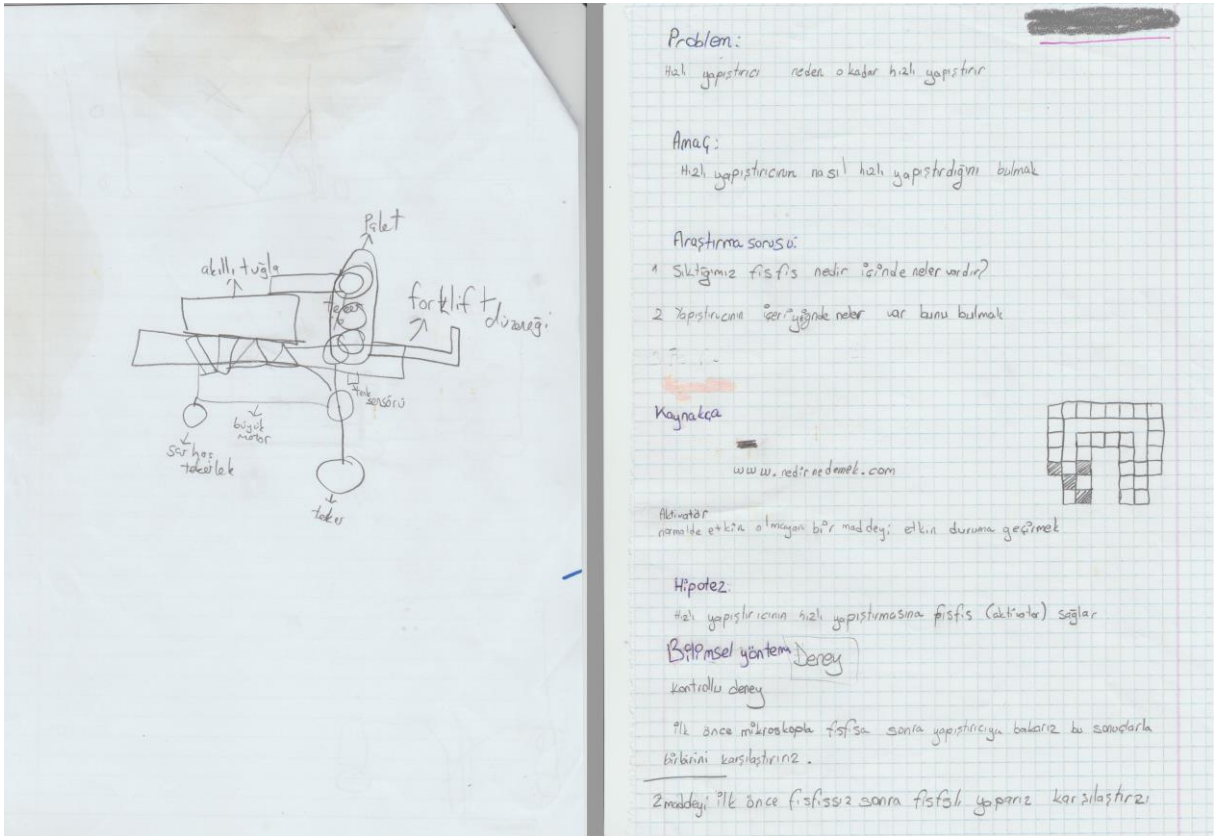 Palet
akıllı tuğla
teker
forklift
düzeneği
sensörü
büyük
motor
sarhoş
tekerlek
teker
Problem:
Hızlı yapıştırıcı neden o kadar hızlı yapıştırır
Amaç:
Hızlı yapıştırıcının nasıl hızlı yapıştırdığını bulmak
Araştırma sorusu:
1 Sıktığımız fısfıs nedir içinde neler vardır?
2 Yapıştırıcının içeriyğinde neler var bunu bulmak
Kaynakça
www.nedirnedemek.com
Aktivatör
normalde etkin olmayan bir maddeyi etkin duruma geçirmek
Hipotez:
Hızlı yapıştırıcının hızlı yapıştırmasına fısfıs (aktivatör) sağlar
Bilimsel yöntem Deney
kontrollu deney
ilk önce mikroskopla fısfısa sonra yapıştırıcıya bakarız bu sonuçlarla
birbirini karşılaştırırız.
2 maddeyi ilk önce fısfıssız sonra fısfıslı yaparız karşılaştırzı